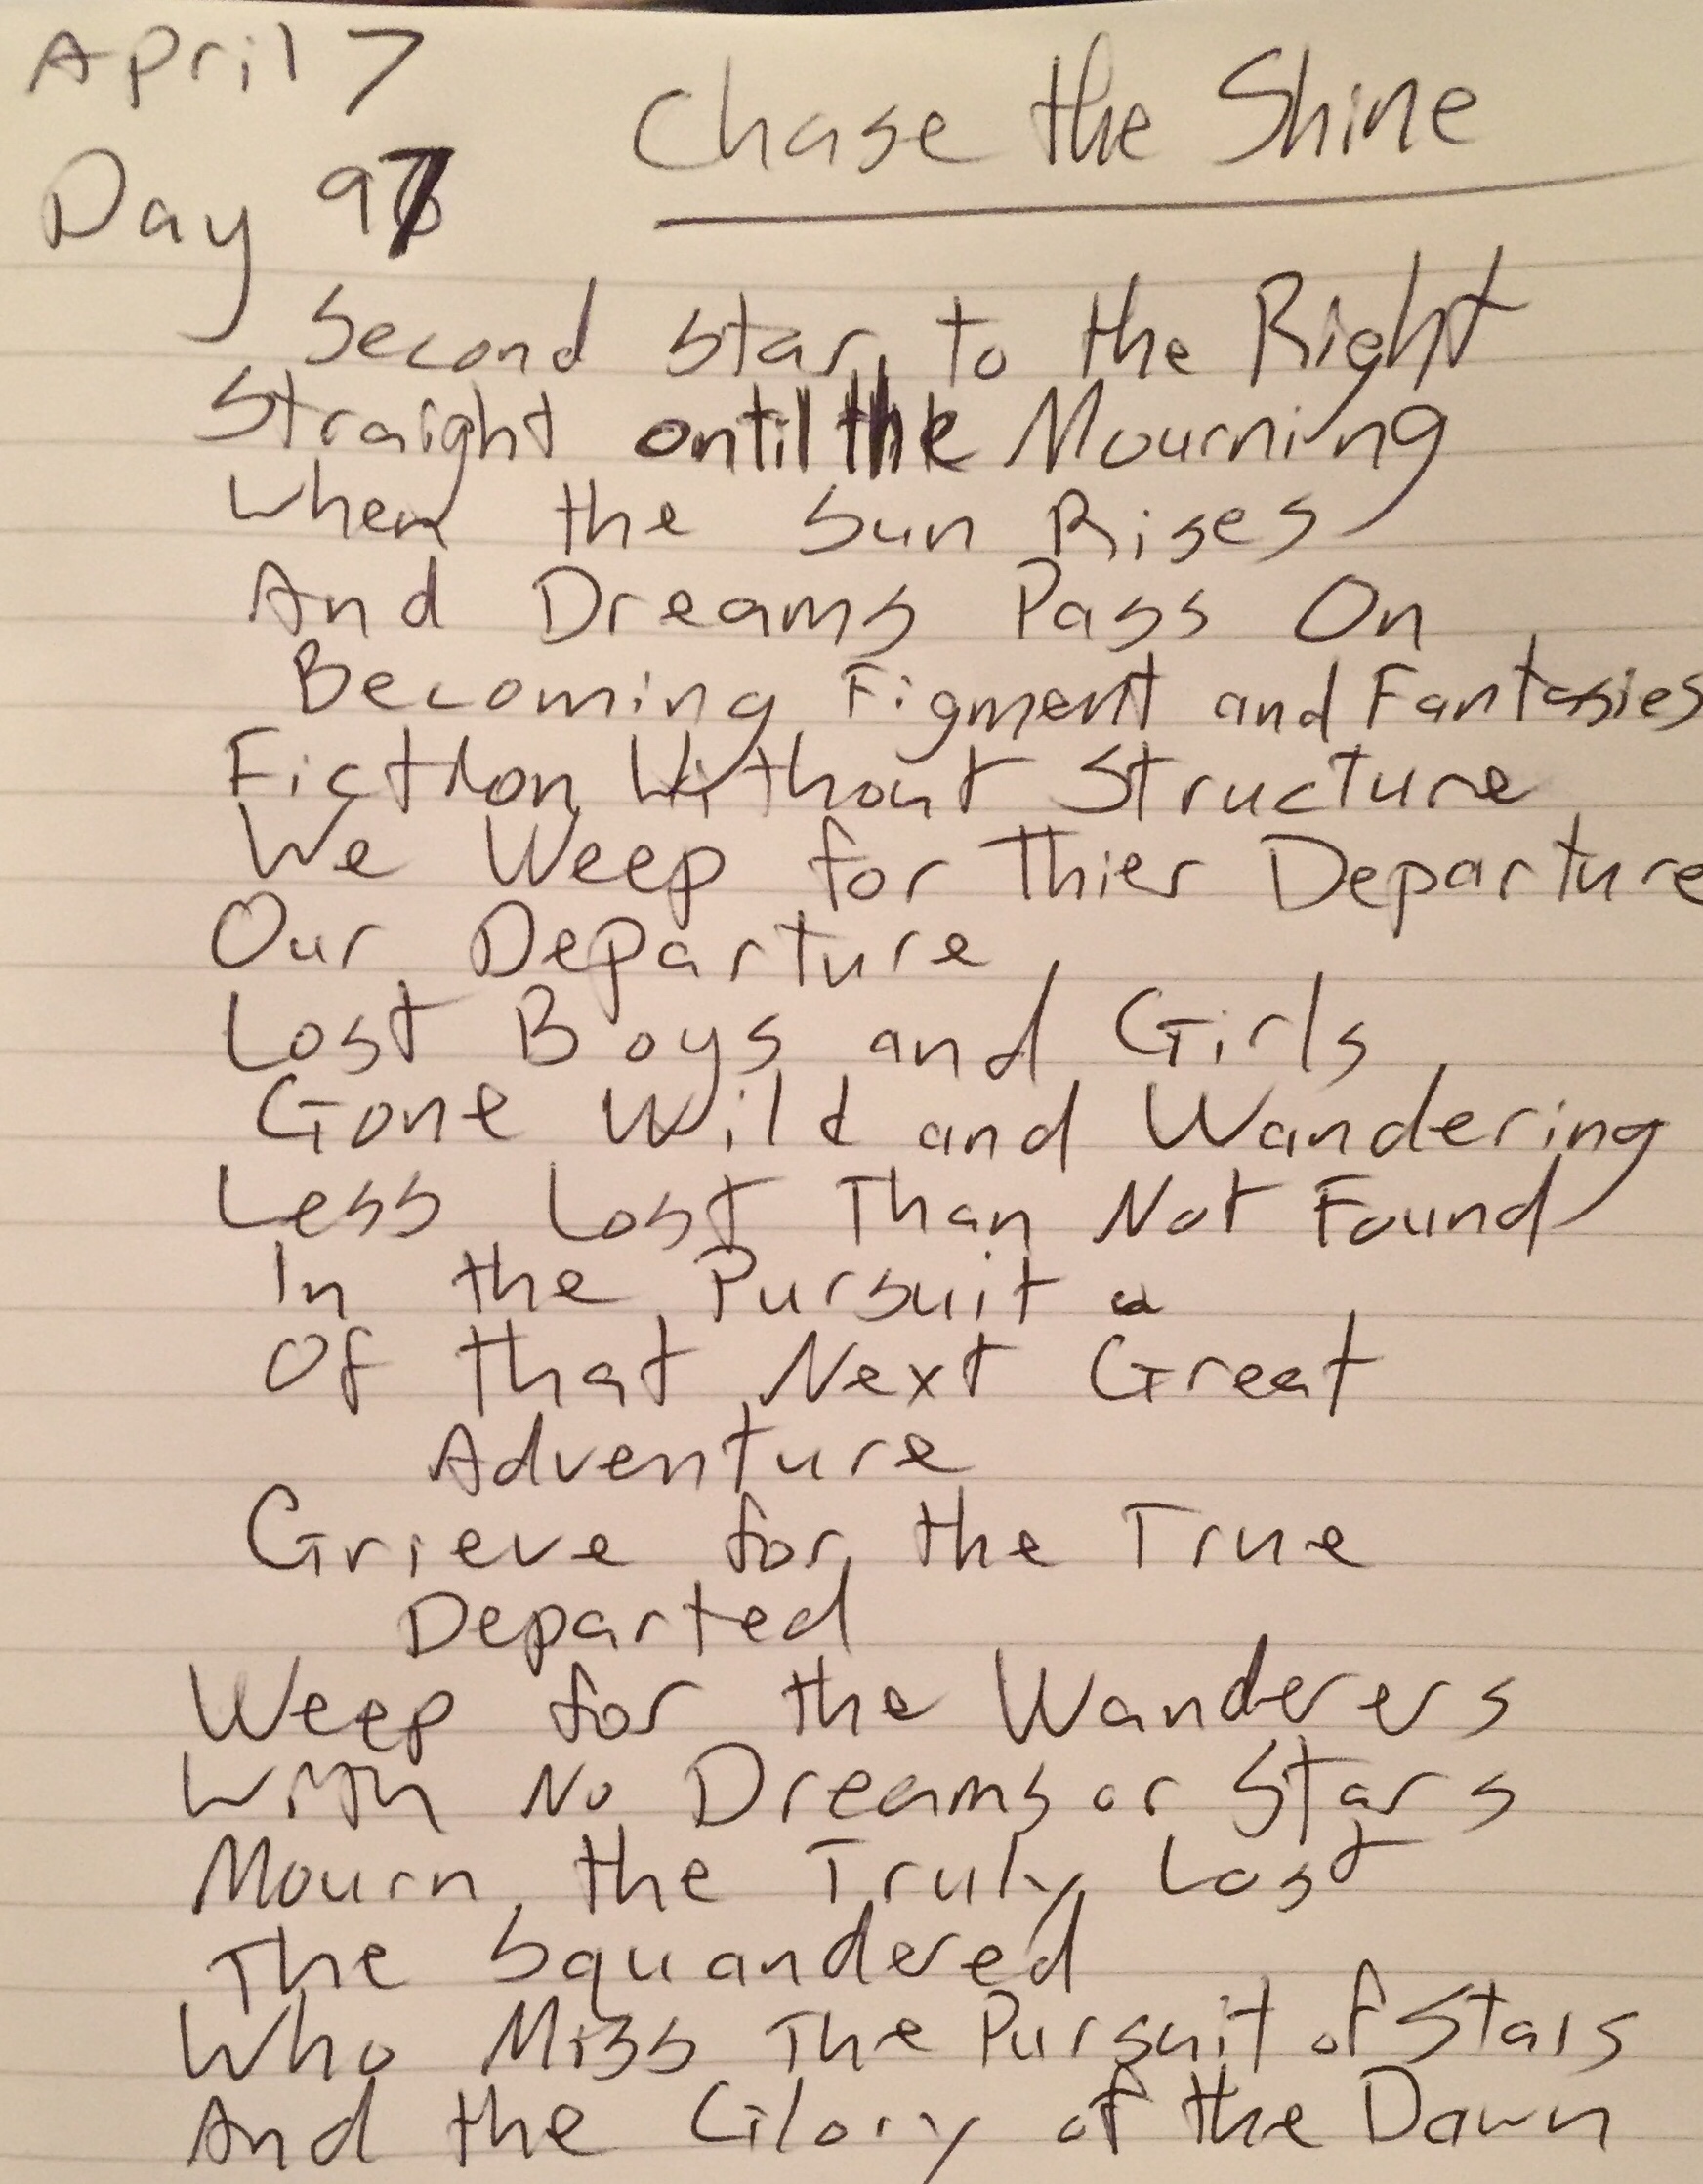 April 7
Chase the Shine
Day 97
Second Star to the Right
Straight until the Mourning
When the Sun Rises
And Dreams Pass On
Becoming Figment and Fantasies
Fiction Without Structure
We Weep for Thier Departure
Our Departure
Lost Boys and Girls
Gone Wild and Wandering
Less Lost Than Not Found
In the Pursuit
Of that Next Great
Adventure
Grieve for the True
Departed
Weep for the Wanderers
With No Dreams or Stars
Mourn the Truly Lost
The Squandered
Who Miss The Pursuit of Stars
And the Glory of the Dawn